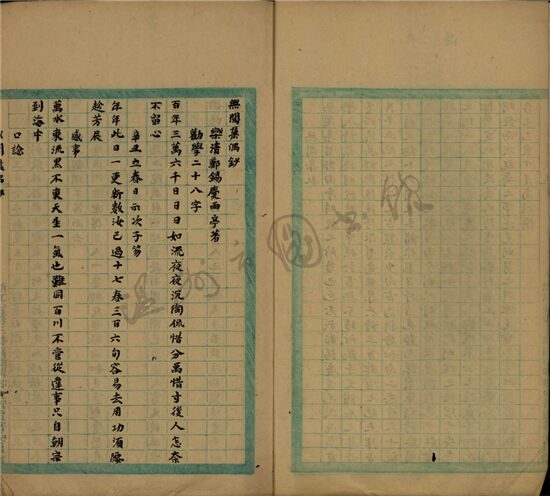 無聞集偶鈔
樂清鄭錫慶雨亭著
勸學二十八字
百年三萬六千日日日如流夜夜沉陶侃惜分禹惜寸後人怎奈
不留心
辛丑立春日示次子
年年此日一更新數汝已過十七春三百六旬容易去用功須
趁芳辰
感事
萬水東流黑不東天生一氣也難同百川不管從違事只自朝宗
到海中
口諗
温州市圖書館